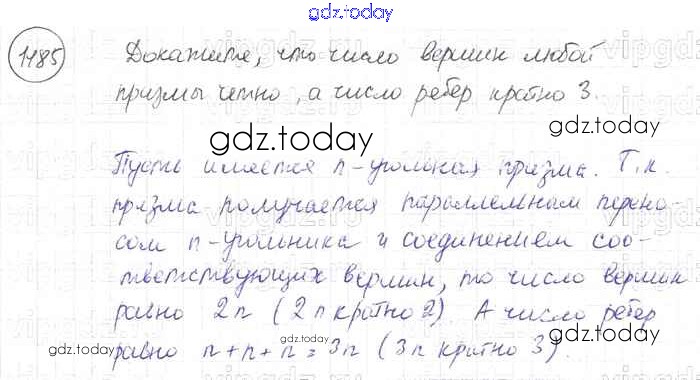 gdz.today
1185
Докажите, что число вершин любой
призмы четно, а число ребер кратно 3.
gdz.today
Пусть имеется n-угольная призма. Т.к.
призма получается параллельным перено-
сом n-угольника и соединением соо-
тветствующих вершин, то число вершин
равно 2n (2n кратно 2). А число ребер
равно n+n+n=3n (3n кратно 3).
gdz.today
gdz.today
gdz.today
gdz.today